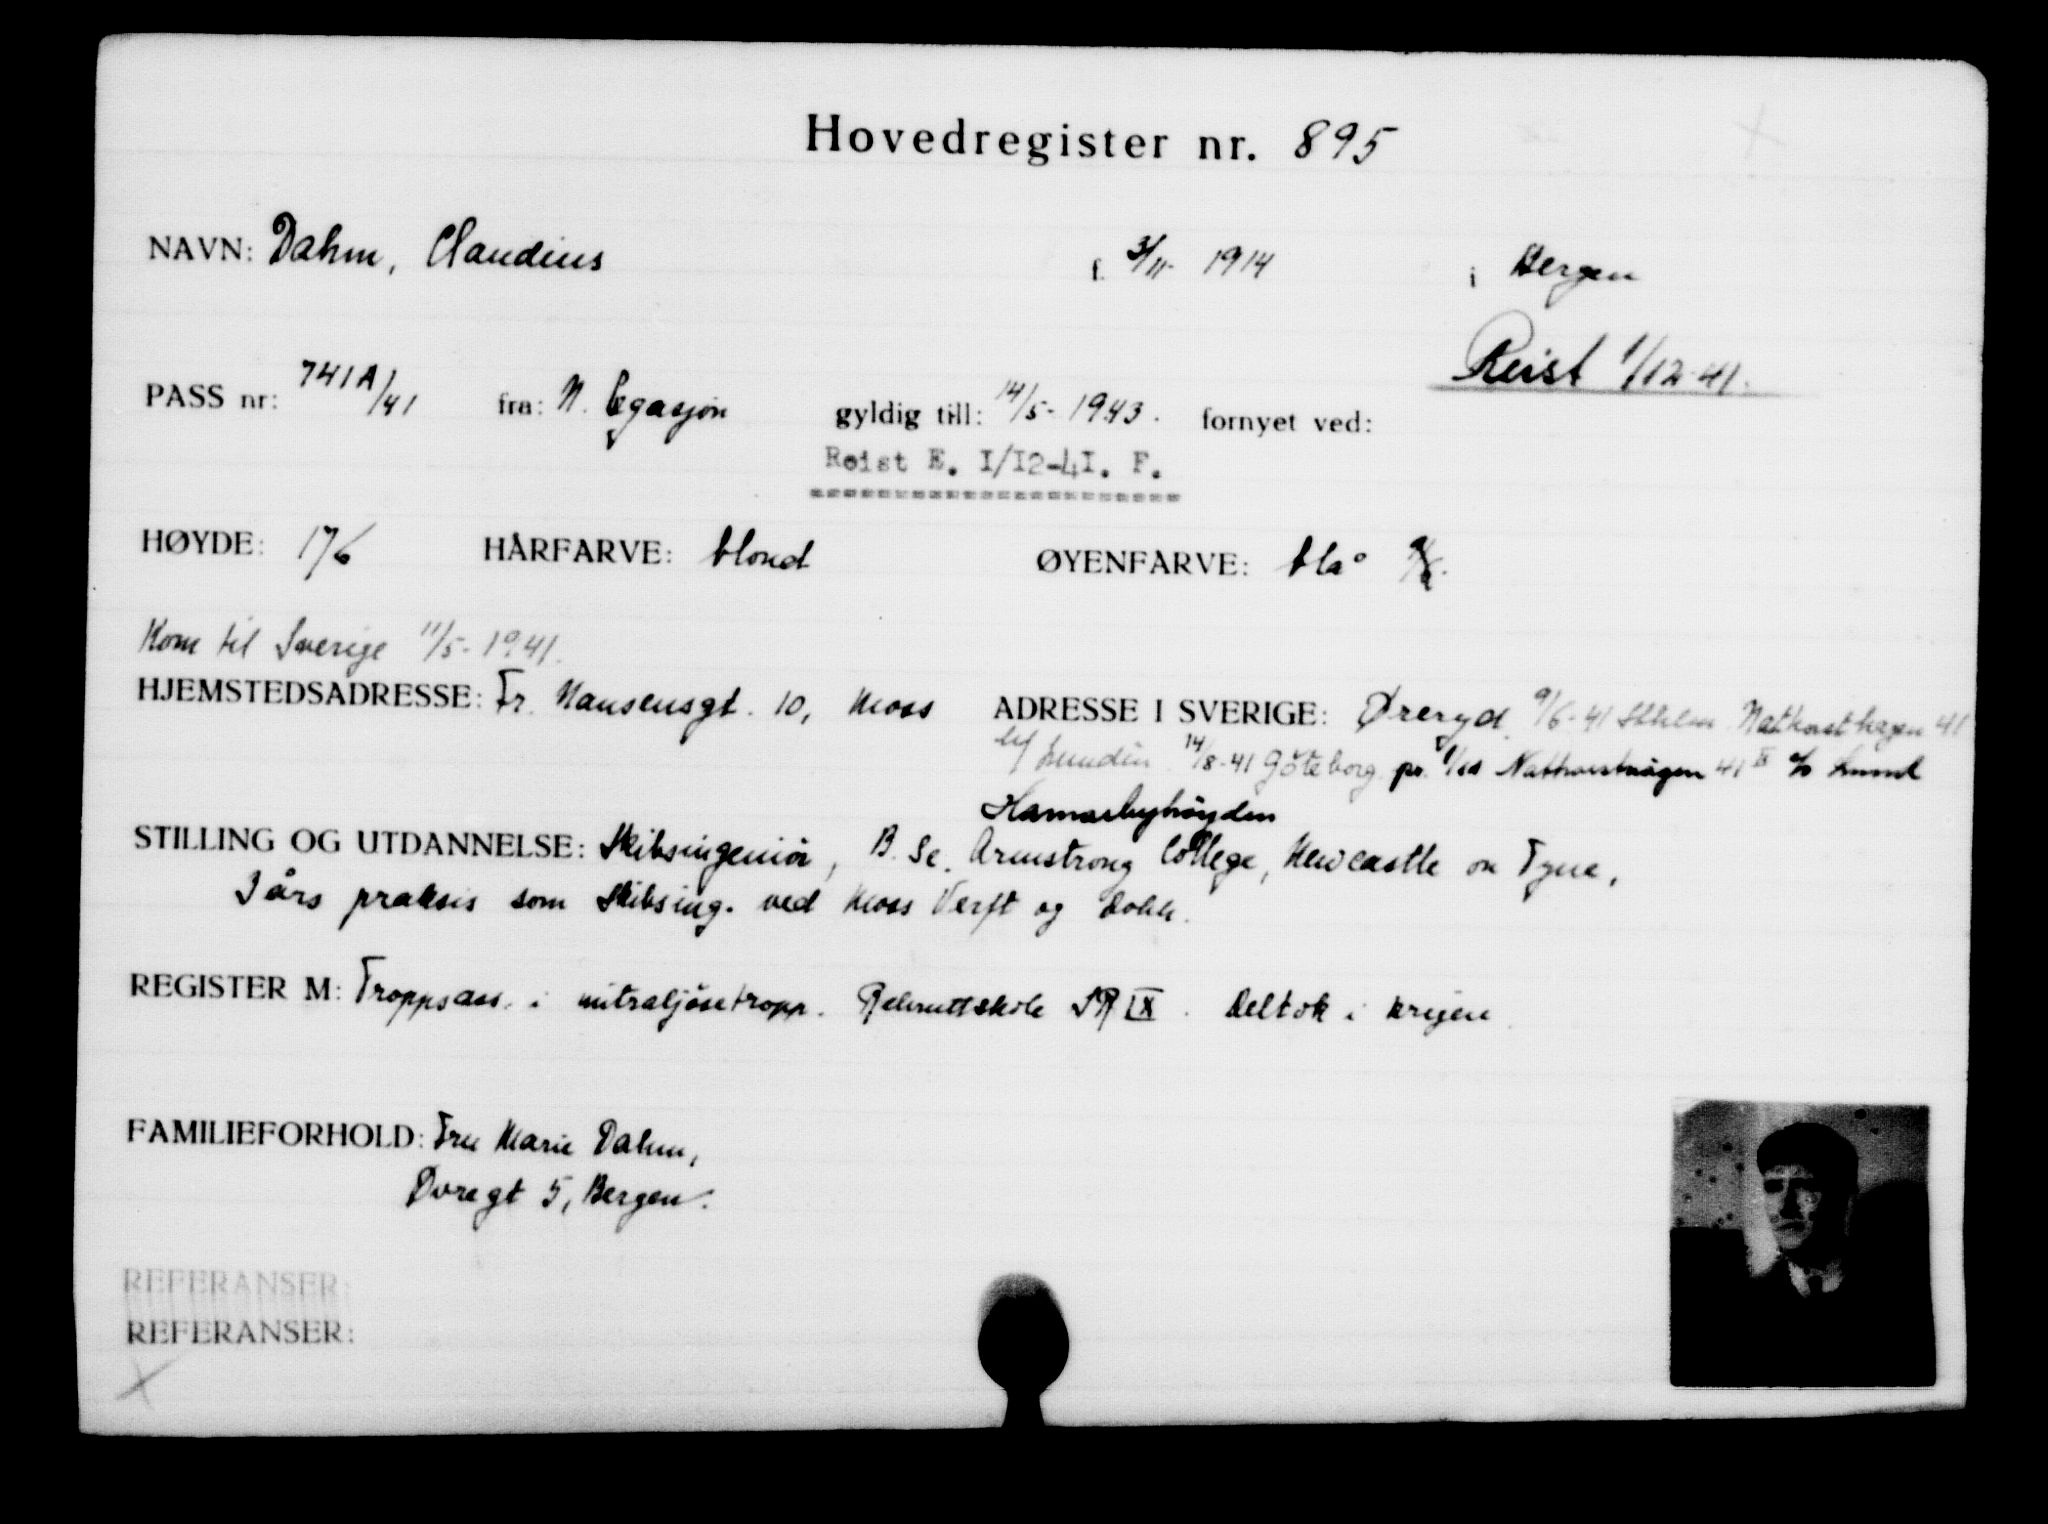 Hovedregister nr. 895
NAVN: Dahm, Claudius f. 3/11- 1914 i Bergen
Reist 1/12-41.
PASS nr: 741A/41 fra: N. Legasjon gyldig till: 14/5- 1943. fornyet ved:
Reist E. I/I2-4I. F.
HØYDE: 176 HÅRFARVE: blond ØYENFARVE: blå
Kom til Sverige 11/5- 1941.
HJEMSTEDSADRESSE: Fr. Nansensgt. 10, Moss ADRESSE I SVERIGE: Øreryd 9/6-41 Sthlm. 41
14/8-41 Göteborg. pr. Nathorstvägen 41 II c/o Lund
Hamarbyhöyden
STILLING OG UTDANNELSE: Skibsingeniör, B. Sc. Armstrong College, Newcastle on Tyne,
3 års praksis som Skibsing. ved Moss Verft og Dokk.
REGISTER M: Troppsass. i mitraljösetropp. Rekruttskole IR IX. Deltok i krigen
FAMILIEFORHOLD: Fru Marie Dahm,
Dvregt 5, Bergen.
REFERANSER:
REFERANSER: